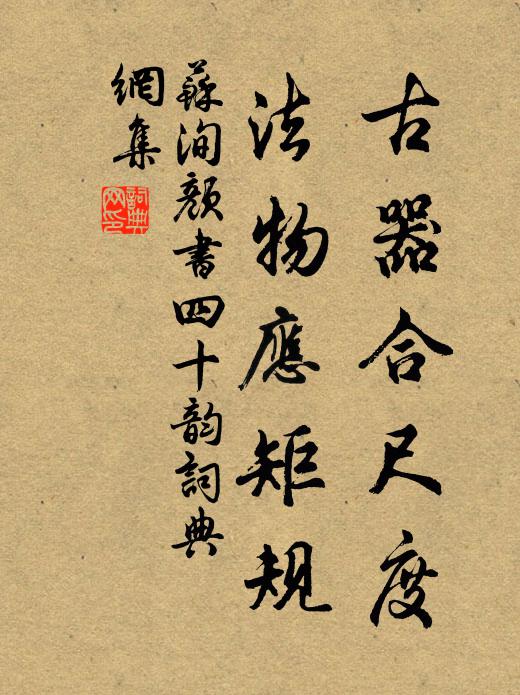 古器合尺度
法物應矩規
蘇洵顏書四十韵詞典
網集
詞典网印